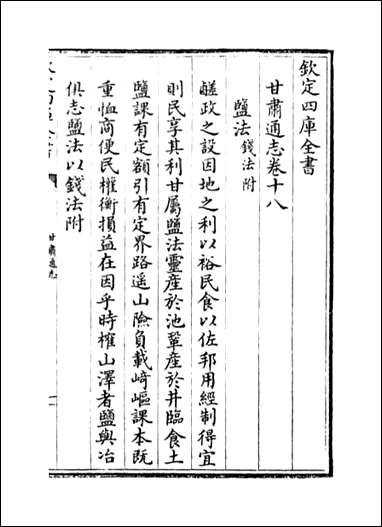 欽定四庫全書
甘肅通志卷十八
鹽法錢法附
鹺政之設因地之利以裕民食以佐邦用經制得宜
則民享其利甘屬鹽法靈產於池鞏產於井臨食土
鹽課有定額引有定界路遥山險負載崎嶇課本既
重恤商便民權衡損益在因乎時榷山澤者鹽與冶
俱志鹽法以錢法附
甘肅通志
一